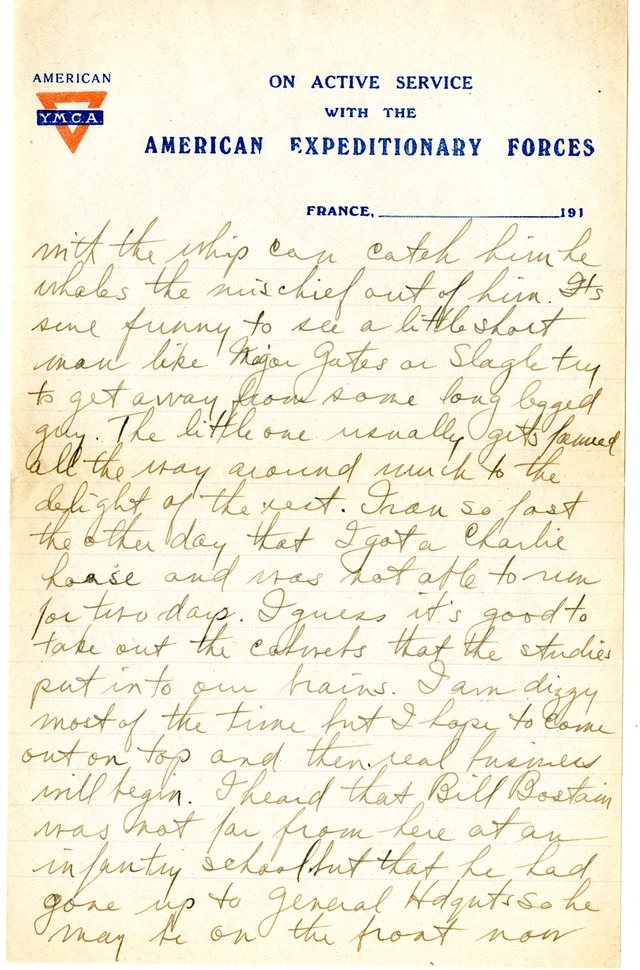 AMERICAN
Y.M.C.A.
ON ACTIVE SERVICE
WITH THE
AMERICAN EXPEDITIONARY FORCES
FRANCE, 191
with the whip can catch him he
whales the mischief out of him. Its
sure funny to see a little short
man like Major Gates or Slagle try
to get away from some long legged
guy. The little one usually gets fanned
all the way around much to the
delight of the rest. I ran so fast
the other day that I got a Charlie
hoarse and was not able to run
for two days. I guess it's good to
take out the cobwebs that the studies
put into our brains. I am dizzy
most of the time but I hope to come
out on top and then real business
will begin. I heard that Bill Bostain
was not far from here at an
infantry school but that he had
gone up to General Hdqnts so he
may be on the front now